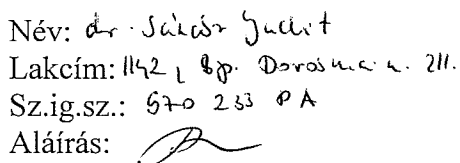 Név: dr. Judit
Lakcím: 1142, Bp. Dorozsmai u. 211.
Sz.ig.sz.: 570 233 PA
Aláírás: